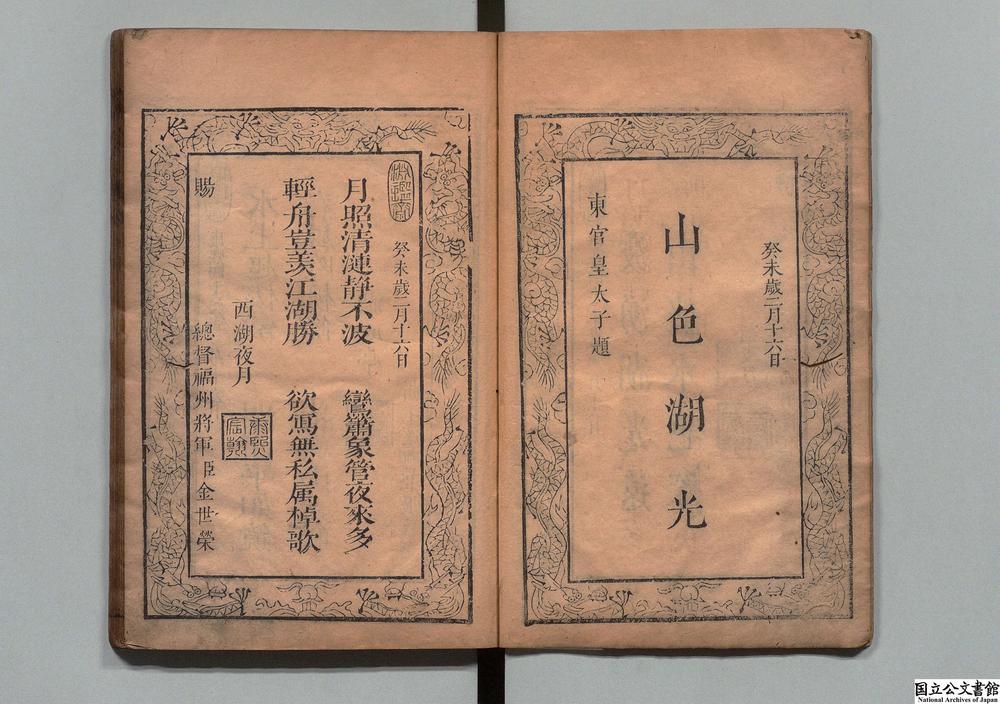 癸未歲二月十六日
山色湖光
東宫皇太子題
淵鑒齋
癸未歲二月十六日
月照清漣靜不波 鸞簫象管夜來多
輕舟豈羨江湖勝 欲寫無私属棹歌
西湖夜月
康熙宸翰
賜
總督福州將軍臣金世榮
国立公文書館
National Archives of Japan